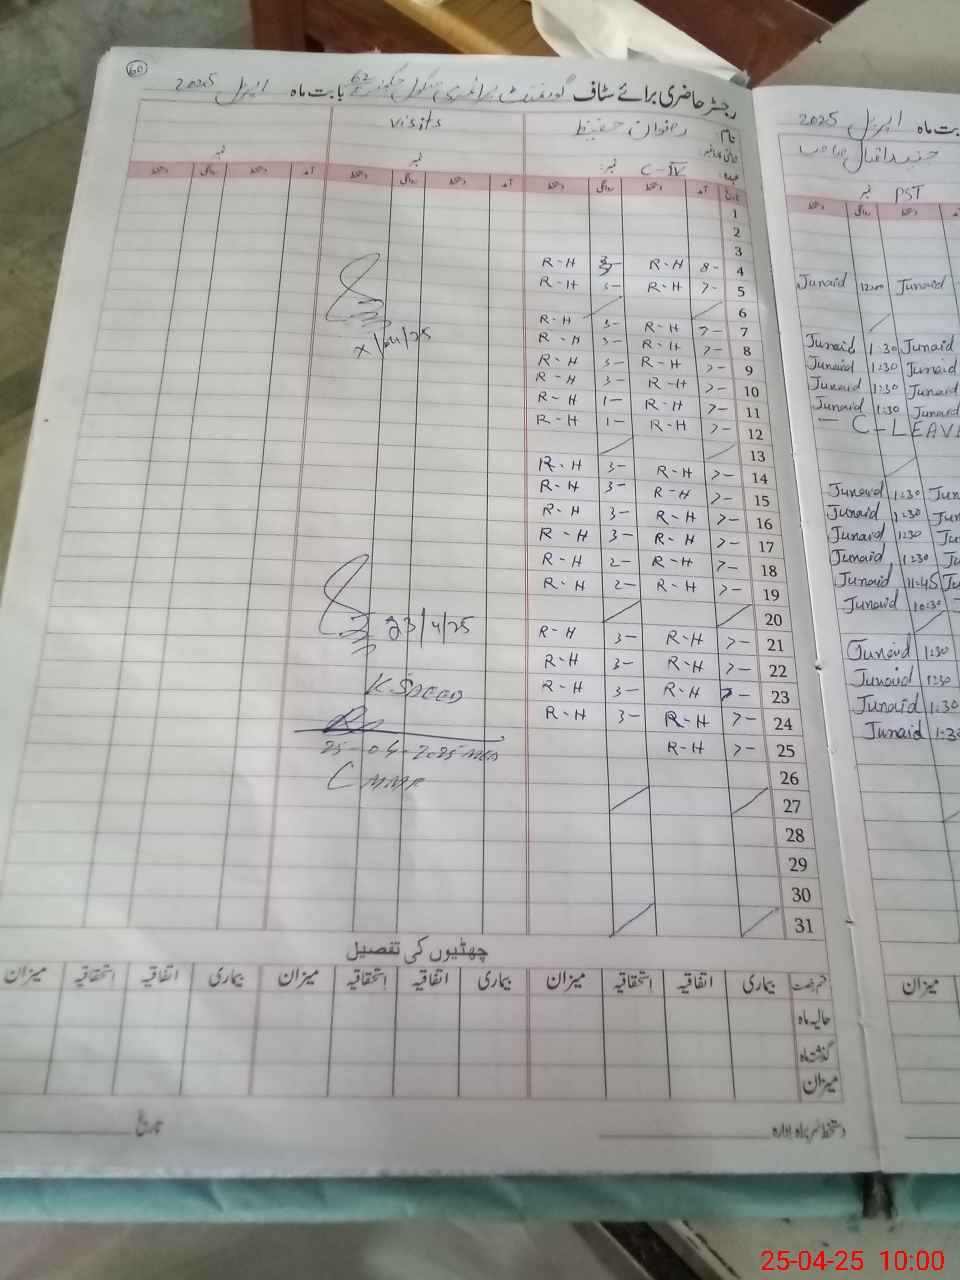 60
رجسٹر حاضری برائے سٹاف گورنمنٹ پرائمری سکول بابت ماہ اپریل 2025
نام رضوان حفیظ
visits
عہدہ C-IV نمبر
تاریخ آمد دستخط روانگی دستخط آمد دستخط روانگی دستخط آمد دستخط روانگی دستخط
1
2
3
4 8- R-H 3- R-H
5 7- R-H 3- R-H
6
7 7- R-H 3- R-H
8 7- R-H 3- R-H
9 7- R-H 3- R-H
10 7- R-H 3- R-H
11 7- R-H 1- R-H
12 7- R-H 1- R-H
13
14 7- R-H 3- R-H
15 7- R-H 3- R-H
16 7- R-H 3- R-H
17 7- R-H 3- R-H
18 7- R-H 2- R-H
19 7- R-H 2- R-H
20
21 7- R-H 3- R-H
22 7- R-H 3- R-H
23 7- R-H 3- R-H
24 7- R-H 3- R-H
25 7- R-H
26
27
28
29
30
31
23/4/25
چھٹیوں کی تفصیل
قسم رخصت بیماری اتفاقیہ استحقاقیہ میزان بیماری اتفاقیہ استحقاقیہ میزان بیماری اتفاقیہ استحقاقیہ میزان
حالیہ ماہ
گذشتہ ماہ
میزان
دستخط سربراہ ادارہ
تاریخ
بابت ماہ اپریل 2025
جنید اقبال
PST نمبر
دستخط روانگی دستخط
Junaid 12:00 Junaid
Junaid 1:30 Junaid
Junaid 1:30 Junaid
Junaid 1:30 Junaid
Junaid 1:30 Junaid
— C-LEAVE
Junaid 1:30 Jun
Junaid 1:30 Jun
Junaid 1:30 Ju
Junaid 1:30 Ju
Junaid 11:45 Ju
Junaid 10:30 J
Junaid 1:30
Junaid 1:30
Junaid 1:30
Junaid 1:3
میزان
25-04-25 10:00